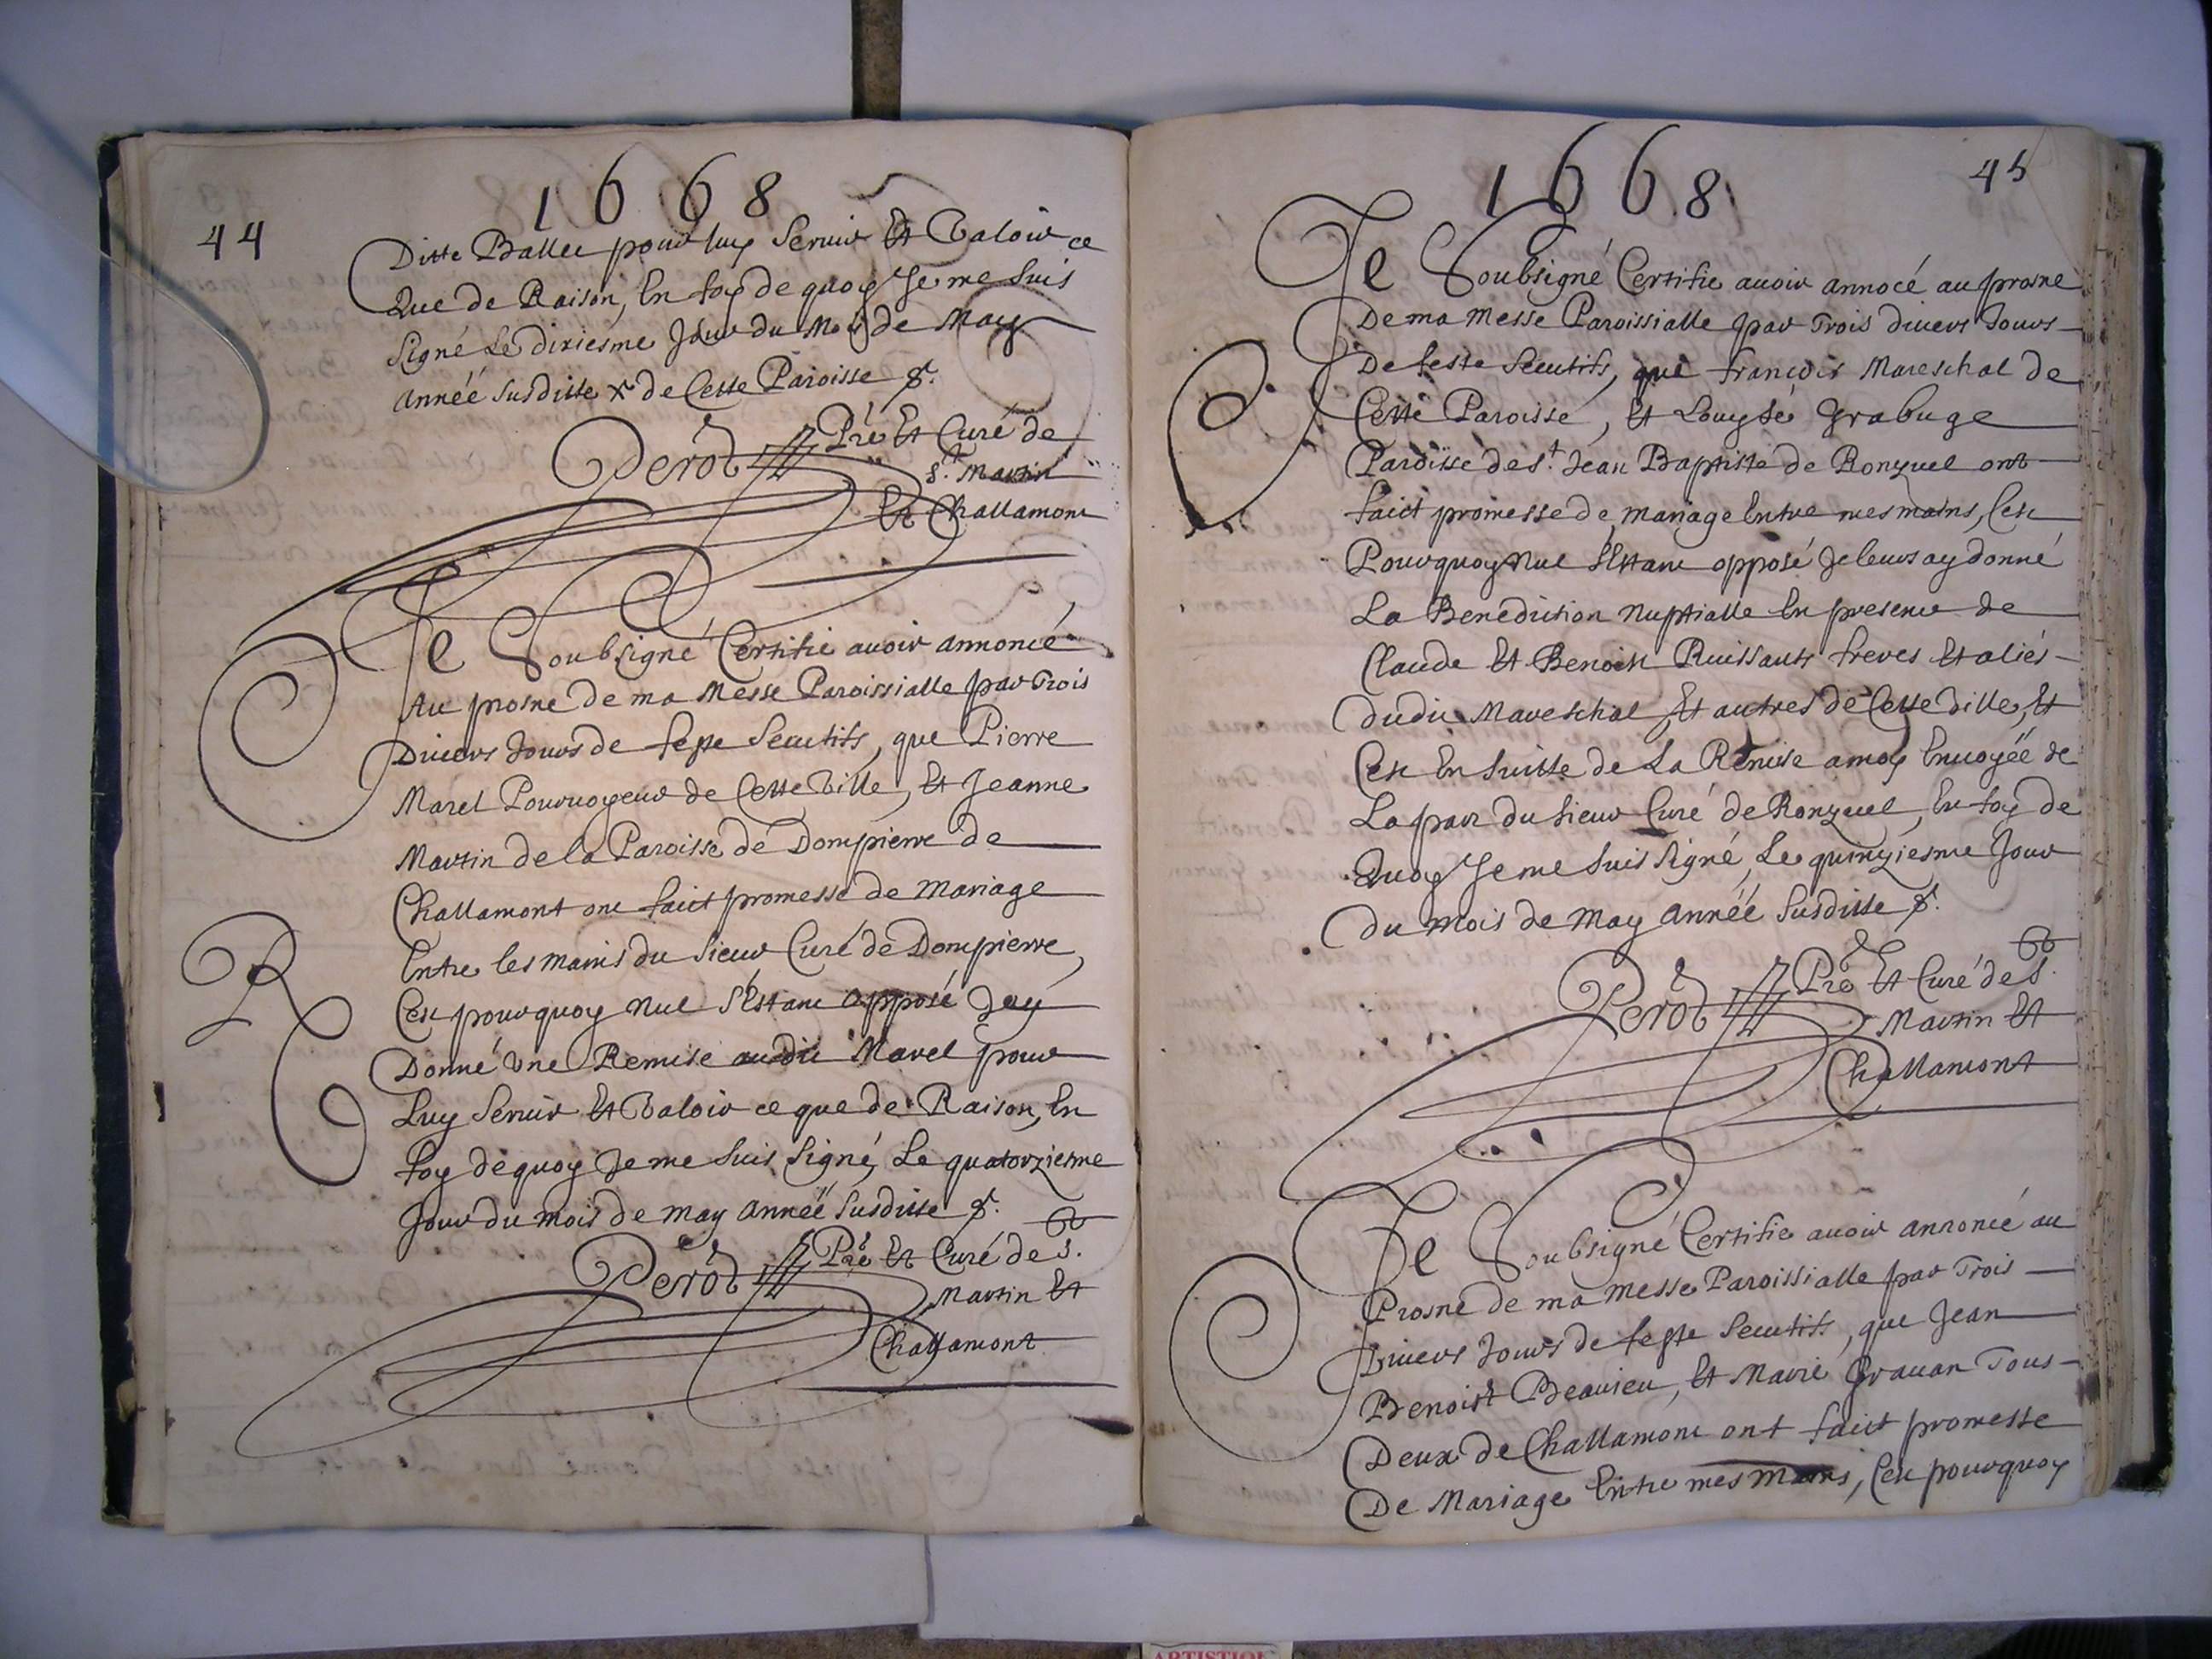 1668
44
Ditte Ballee pour luy Servir Et Valoir ce
Que de Raison, En foy de quoy Je me suis
Signé Le dixiesme Jour du Mois de May
Année susditte de Cette Paroisse
Perot Pre Et Curé de
St. Martin
Et Challamont
Je Soubsigné Certifie avoir annoncé
Au prosne de ma Messe Paroissialle par Trois
Divers Jours de feste Secutifs, que Pierre
Marel Pourvoyeur de Cette Ville, Et Jeanne
Martin de la Paroisse de Dompierre de
Challamont ont faict promesse de Mariage
Entre les mains du Sieur Curé de Dompierre,
Cest pourquoy Nul S'Estant Opposé J'ay
Donné Une Remise audit Marel pour
Luy Servir Et Valoir ce que de Raison, En
foy de quoy Je me Suis Signé, Le quatorziesme
Jour du mois de may Année Susditte
R
Perot Pre Et Curé de S.t
Martin Et
Challamont
1668
45
Je Soubsigné Certifie avoir annocé au prosne
De ma Messe Paroissialle par Trois divers Jours
De feste Secutifs, que François Mareschal de
Cette Paroisse, Et Louyse Grabuge
Paroisse de St. Jean Baptiste de Ronzuel ont
faict promesse de mariage Entre mes mains, Cest
Pourquoy Nul S'Estant opposé Je leurs ay donné
La Benediction Nuptialle En presence de
Claude Et Benoist Ruissants freres Et aliés
dudit Mareschal Et autres de Cette Ville, Et
Cest En Suitte de La Remise a moy Envoyée de
La part du Sieur Curé de Ronzuel, En foy de
Quoy Je me Suis Signé, Le quinziesme Jour
du mois de May année Susditte
Perot Pre Et Curé de S.t
Martin Et
Challamont
Je Soubsigné Certifie avoir annoncé au
Prosne de ma Messe Paroissialle par Trois
Divers Jours de feste Secutifs, que Jean
Benoist Beauieu, Et Marie Gravan Tous
Deux de Challamont ont faict promesse
De Mariage Entre mes mains, Cest pourquoy